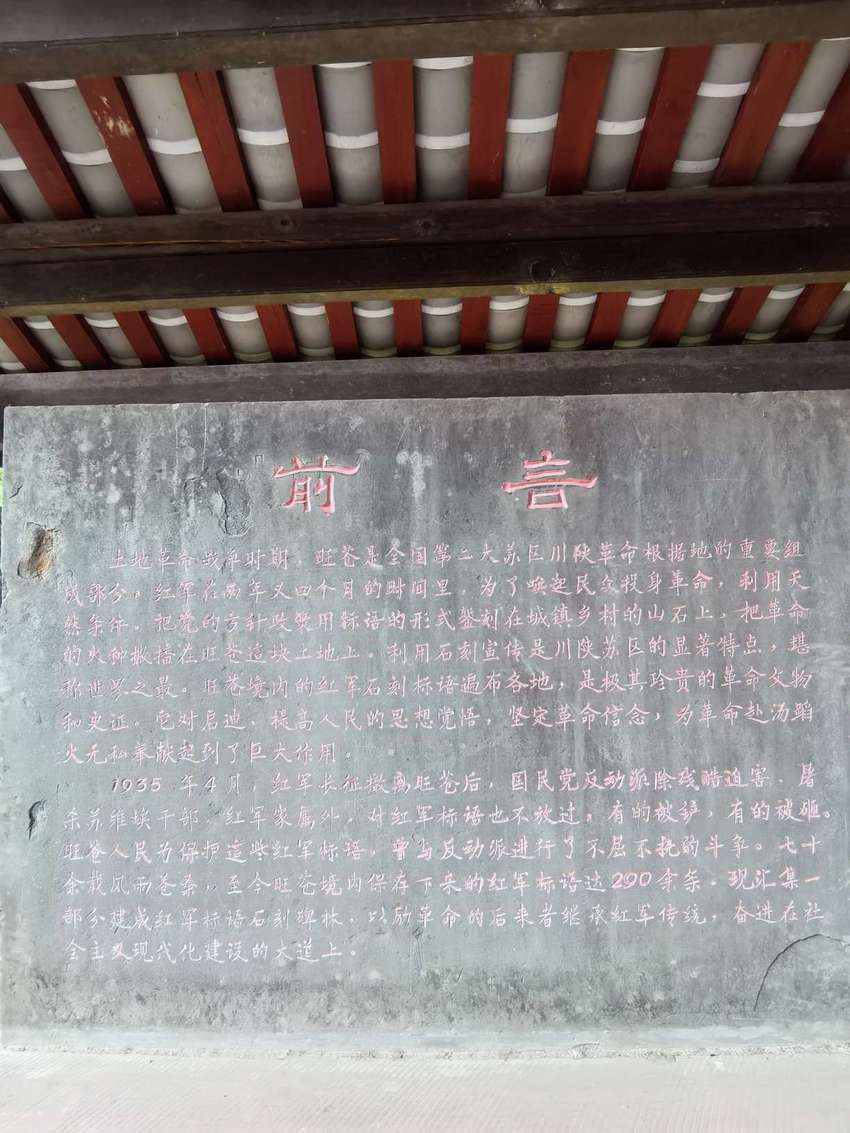 前言
土地革命战争时期，旺苍是全国第二大苏区川陕革命根据地的重要组
成部分。红军在两年又四个月的时间里，为了唤起民众投身革命，利用天
然条件，把党的方针政策用标语的形式錾刻在城镇乡村的山石上，把革命
的火种撒播在旺苍这块土地上。利用石刻宣传是川陕苏区的显著特点，堪
称世界之最。旺苍境内的红军石刻标语遍布各地，是极其珍贵的革命文物
和史证。它对启迪、提高人民的思想觉悟，坚定革命信念，为革命赴汤蹈
火无私奉献起到了巨大作用。
1935年4月，红军长征撤离旺苍后，国民党反动派除残酷迫害、屠
杀苏维埃干部、红军家属外，对红军标语也不放过，有的被铲，有的被砸。
旺苍人民为保护这些红军标语，曾与反动派进行了不屈不挠的斗争。七十
余载风雨苍桑，至今旺苍境内保存下来的红军标语达290余条。现汇集一
部分建成红军标语石刻碑林，以励革命的后来者继承红军传统，奋进在社
会主义现代化建设的大道上。